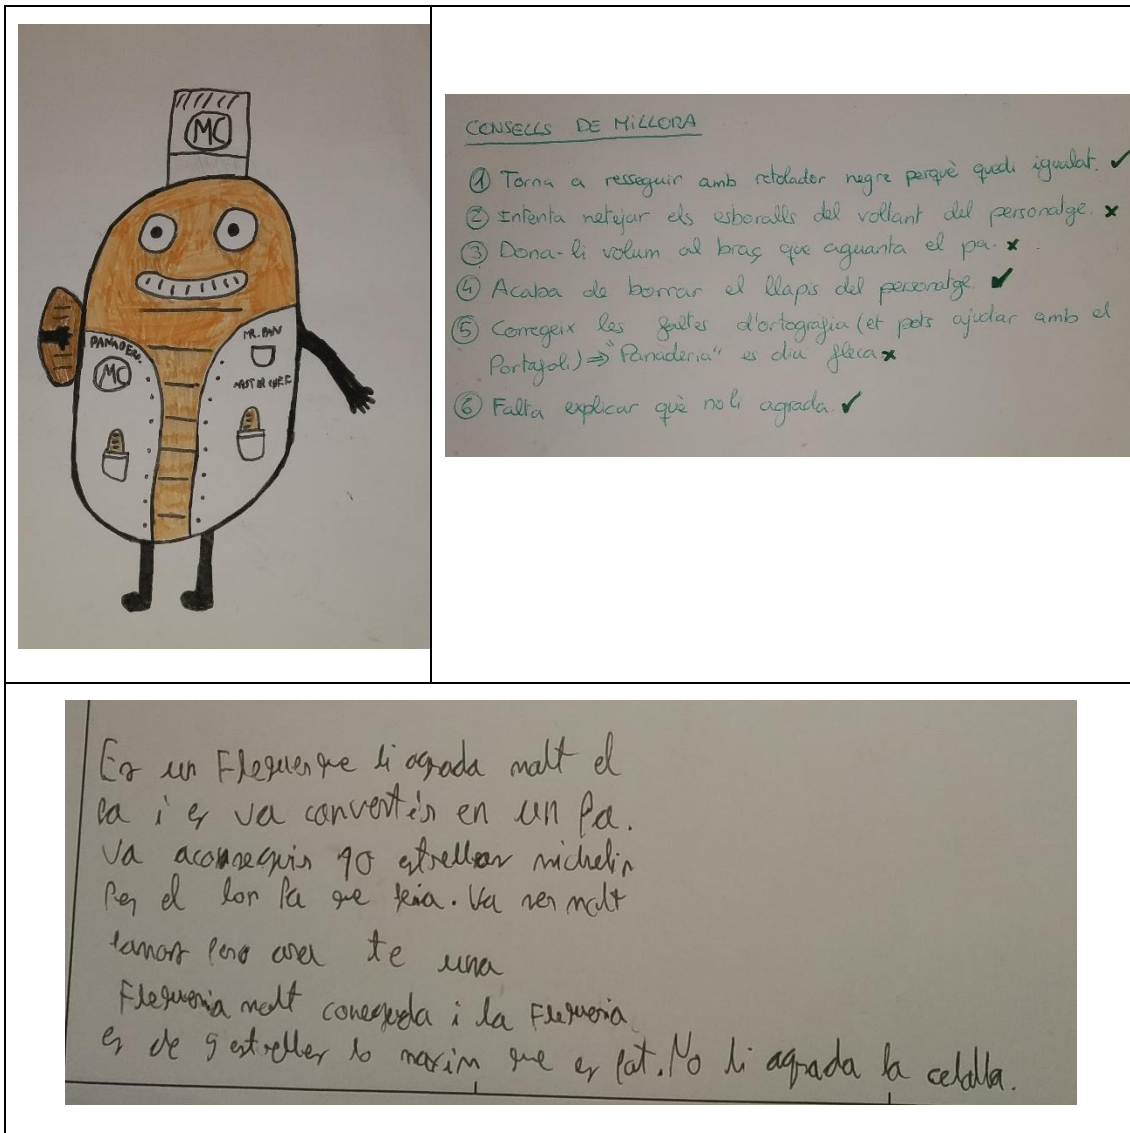 MC
PANADERIA
MC
MR. PAN
MASTER CHEF
CONSELLS DE MILLORA
① Torna a resseguir amb retolador negre perquè quedi igualat. ✔
② Intenta netejar els esboralls del voltant del personatge. ✖
③ Dona-li volum al braç que aguanta el pa. ✖
④ Acaba de borrar el llapis del personatge. ✔
⑤ Corregeix les faltes d'ortografia (et pots ajudar amb el
Portafoli) ⇒ "Panaderia" es diu fleca ✖
⑥ Falta explicar què no li agrada. ✔
Es un Flequer que li agrada molt el
pa i es va convertir en un pa.
Va aconseguir 10 estrelles michelin
Per el bon Pa que feia. Va ser molt
famos pero ara te una
Flequeria molt coneguda i la Flequeria
es de 5 estrelles lo maxim que es pot. No li agrada la ceballa.